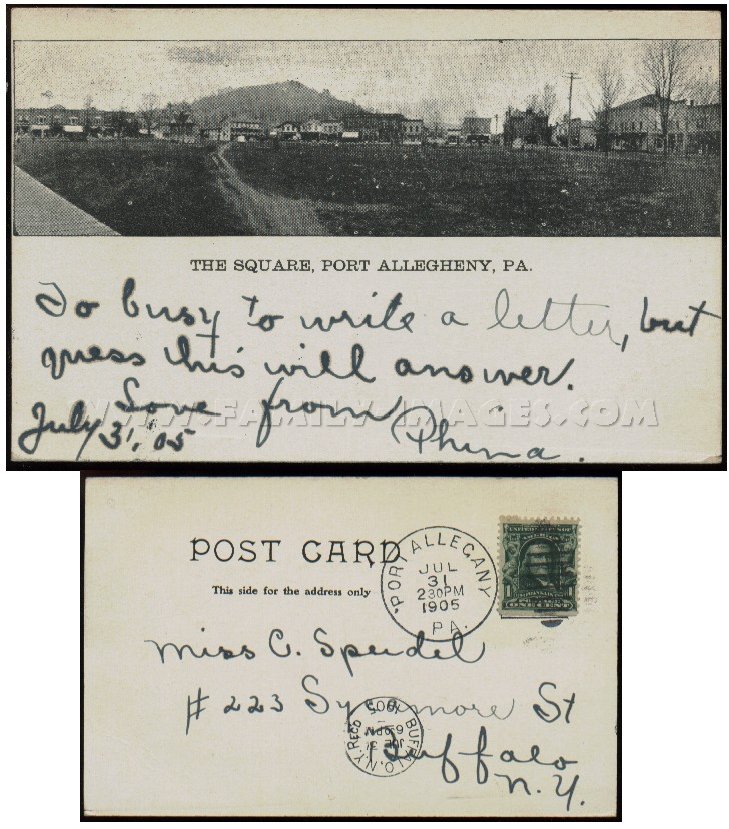 THE SQUARE, PORT ALLEGHENY, PA.
To busy to write a letter, but
guess this will answer.
Love from
July 31, '05
Phina.
WWW.FAMILY-IMAGES.COM
POST CARD
This side for the address only
PORT ALLEGANY
JUL
31
230PM
1905
PA.
1
ONE CENT
Miss C. Speidel
# 223 Sycamore St
Buffalo
N.Y.
BUFFALO, N.Y. REC'D
1905